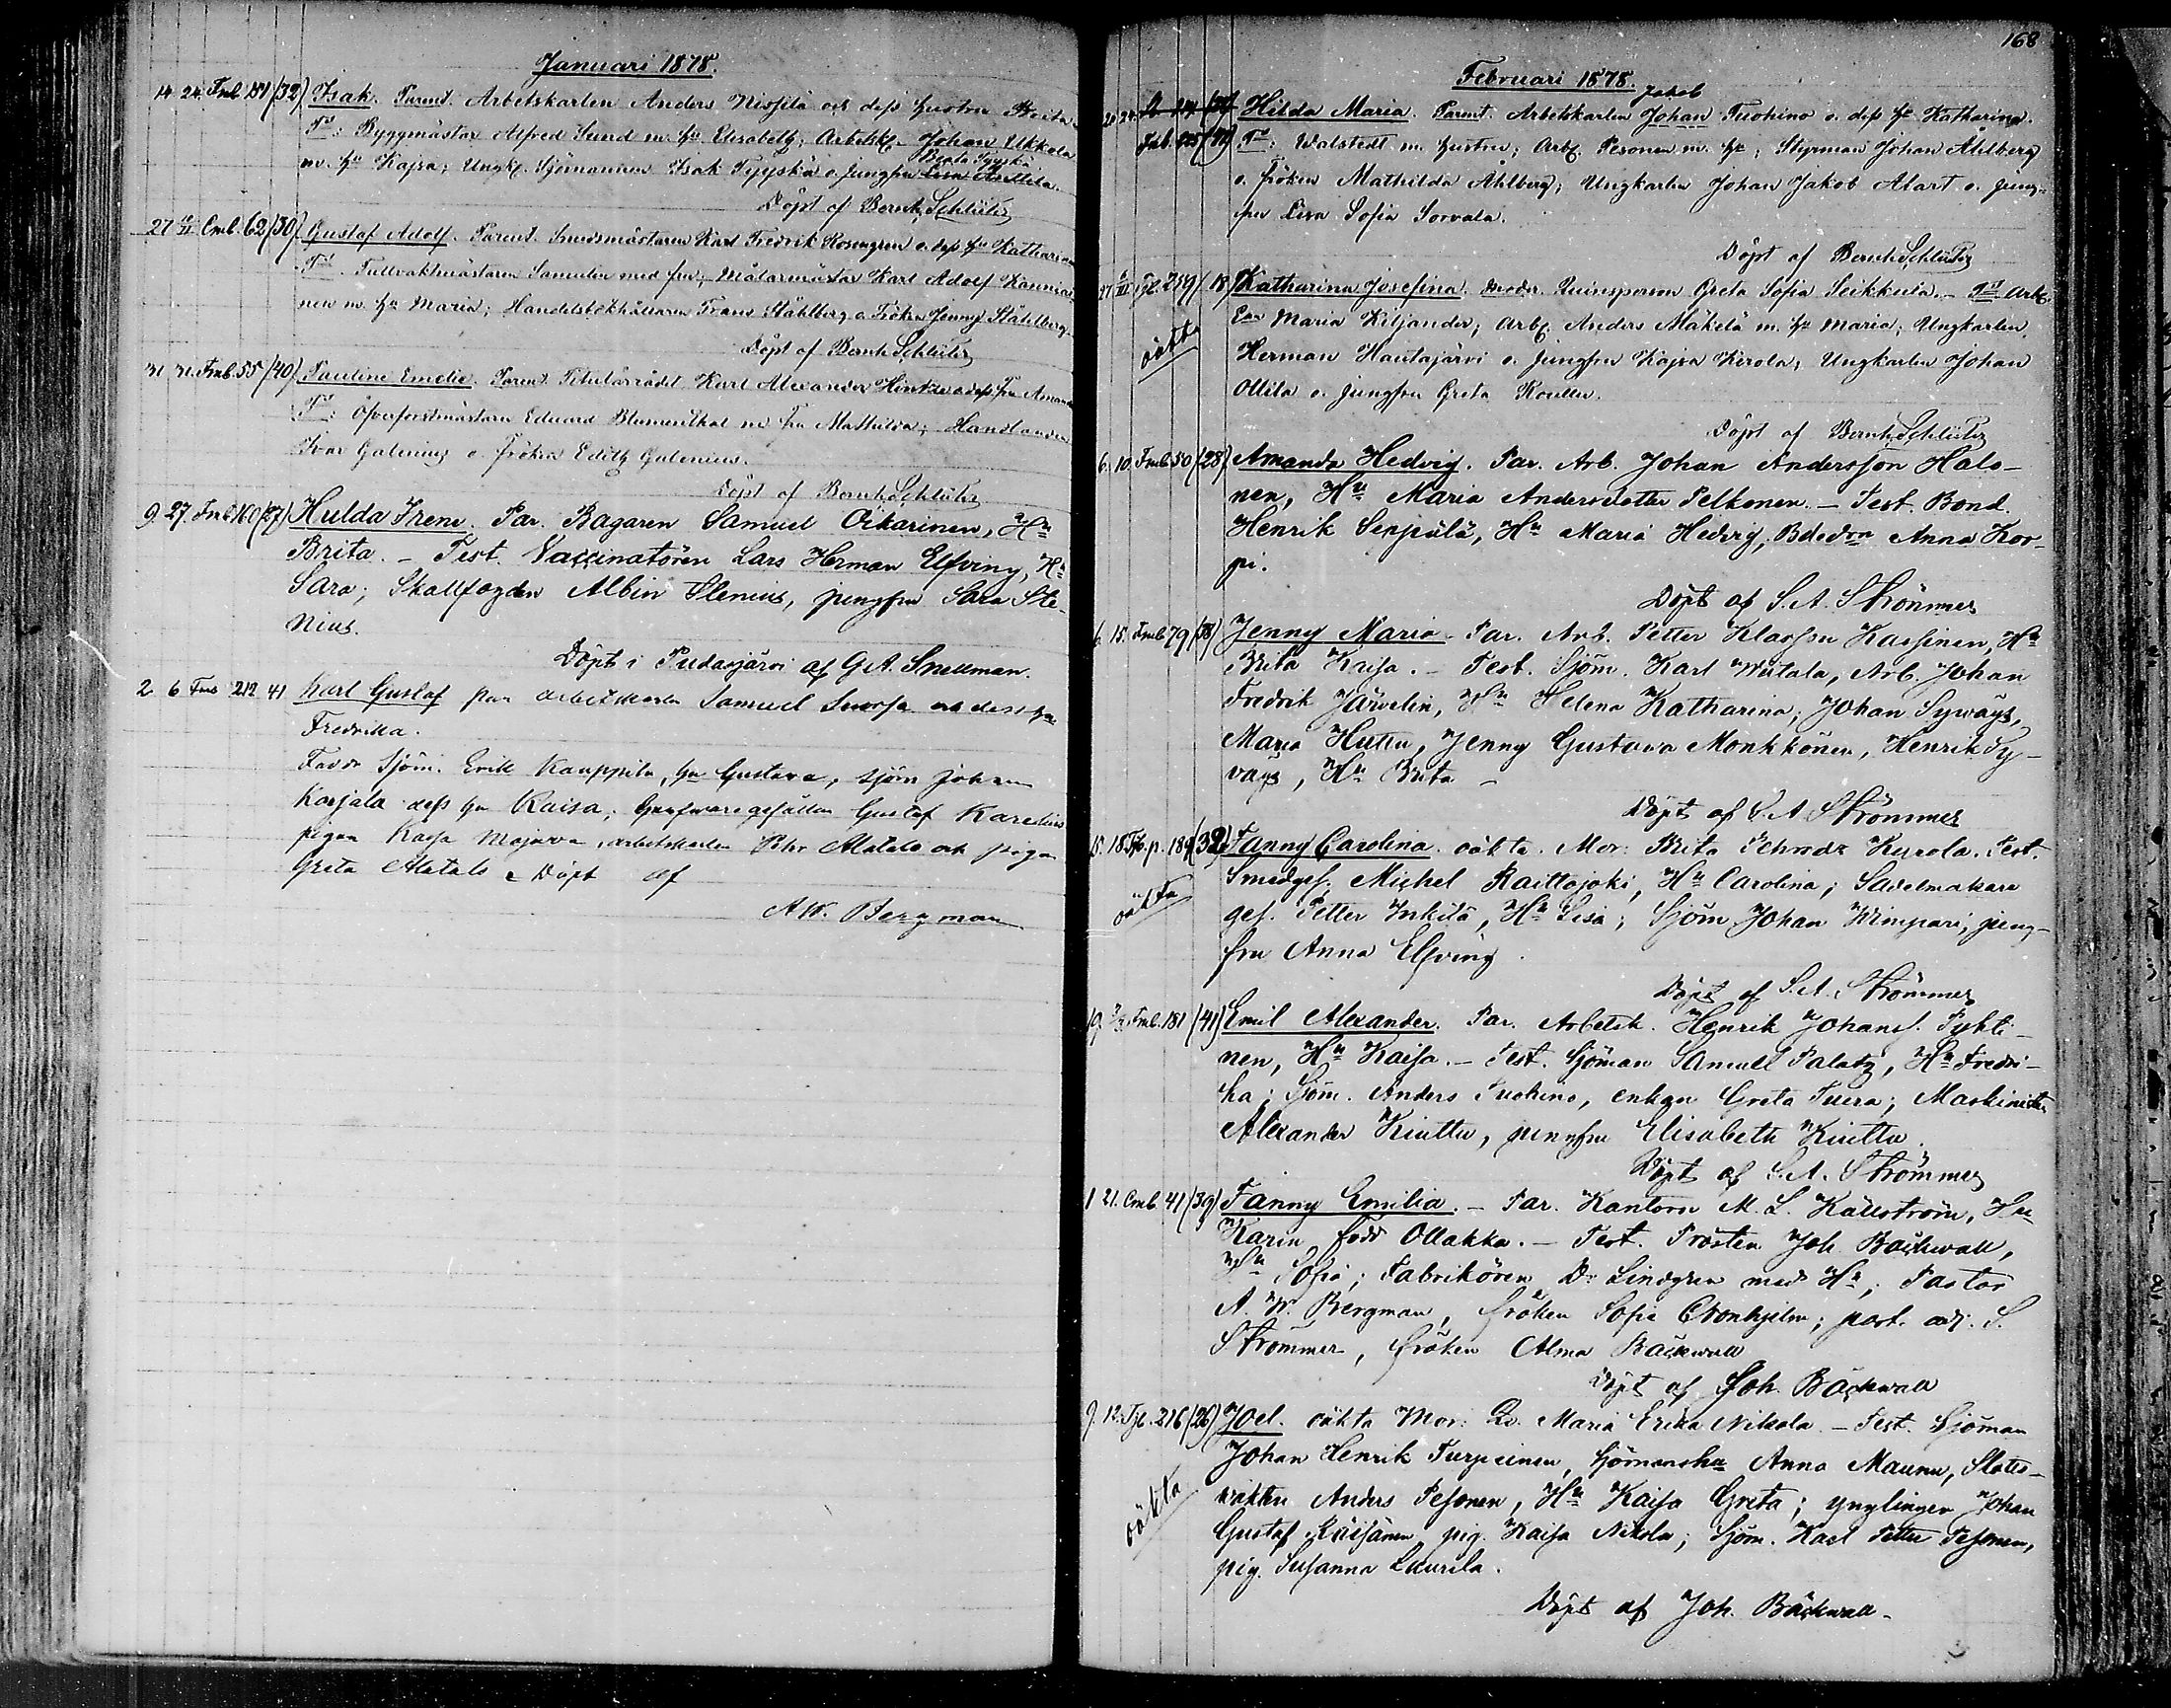 Januari 1878.
14. 24. Fmb. 151 (32) Isak. Parent. Arbetskarlen Anders Niskila och dess hustru Brita
Tt: Byggmästar Alfred Sund m. hu Elisabeth; Arbetsk. Johan Ukkola
Beata Tyyskä
m. hu Kajsa; Ungk. Sjömannen Isak Tyyskä o. jungfru
Döpt af Bernh. Schlüter
27 Cmb. 62 (30) Gustaf Adolf. Parent. Smedsmästaren Karl Fredrik Rosengren o. dess hu Katharina
Tt. Tullvaktmästaren Samulin med fru; Målarmästar Karl Adolf Kaunia
nen m. hu Maria; Handelsbokhållaren Frans Ståhlberg o. Fröken Jenny Ståhlberg.
Döpt af Bernh. Schlüter
31 31. Fmb. 55 (40) Pauline Emelie. Parent. Titulärrådet Karl Alexander Hintze o. dess fru Amanda
Tt: Öfverforstmästarn Eduard Blumenthal m. fru Mathilda; Handlanden
Ivar Galenius o. fröken Edith Galenius.
Döpt af Bernh. Schlüter
9. 27. Fmb. 160 (27) Hulda Irene. Par. Bagaren Samuel Oikarinen, Hu
Brita. – Test. Vaccinatören Lars Herman Elfving, Hu
Sara; Skallfogden Albin Stenius, jungfru Sara Ste-
nius.
Döpt i Pudasjärvi af G.A. Snellman.
2. 6 Fmb 212 41 Karl Gustaf par arbetskarlen Samuel och dess hu
Fredrika.
Fadd. Sjöm. Erik Kauppila, hu Gustava, sjöm Johan
Karjala dess hu Kaisa; Garfvaregesällen Gustaf Karelius
pigan Kajsa Majava, arbetskarlen Petter Matala och pigan
Greta Matala. Döpt af
A.W. Bergman
168
Februari 1878.
Jakob
20. 24. Hilda Maria. Parent. Arbetskarlen Johan Tuohino o. dess hu Katharina.
Tt: Walstedt m. hustru; Arb. Pesonen m. hu; Styrman Johan Åhlberg
o. fröken Mathilda Åhlberg; Ungkarlen Johan Jakob Alart o. jung-
fru Lisa Sofia Sorvala.
Döpt af Bernh. Schlüter
27 249 (18) Katharina Josefina. Moder. Qvinsperson Greta Sofia Seikkula. – Tt Arb.
oäkta
Maria Kiljander; Arb. Anders Mäkelä m. hu Maria; Ungkarlen
Herman Hautajärvi o. jungfru Kajsa Kerola; Ungkarlen Johan
Ollila o. jungfru Greta
Döpt af Bernh. Schlüter
6. 10. Fmb 50 (28) Amanda Hedvig. Par. Arb. Johan Andersson Halo-
nen, Hu Maria Andersdotter Pelkonen. – Test. Bond.
Henrik Seppälä, Hu Maria Hedvig, Anna Kor-
pi.
Döpt af S.A. Strömmer
6. 15. Fmb 79 (38) Jenny Maria. Par. Arb. Petter Klasson Kassinen, Hu
Brita Kajsa. – Test. Sjöm. Karl Wiitala, Arb. Johan
Fredrik Järvelin, Hu Helena Katharina; Johan Syväys,
Maria Huttu, Jenny Gustava Monkkönen, Henrik Sy-
väys, Hu Brita –
Döpt af S.A. Strömmer
15. 18. Fjb. p. 189 (32) Fanny Carolina. oäkta. Mor: Brita Kurola. Test.
oäkta
Smedges. Michel Raittojoki, Hu Carolina; Sadelmakare
ges. Petter Inkilä, Hu Lisa; Sjöm Johan Wimpari; jung-
fru Anna Elfving.
Döpt af S.A. Strömmer
19. Fmb. 181 (41) Emil Alexander. Par. Arbetsk. Henrik Johanss. Pyhti-
nen, Hu Kajsa. – Test. Sjöman Samuel Palatz, Hu Fredri-
ka; Sjöm. Anders Tuohino, enkan Greta Tuera; Maskinisten
Alexander Kiuttu, jungfru Elisabeth Kiuttu.
Döpt af S.A. Strömmer
1 21. Cmb. 41 (39) Fanny Emilia. – Par. Kantorn M. L. Källström, Hu
Karin född Ollakka. – Test. Prosten Joh. Bäckwall,
Hu Sofia; Fabrikören D. Lindgren med Hu; Pastor
A. W. Bergman, fröken Sofie Cronhjelm; past. adj. S.
Strömmer, fröken Alma Bäckwall
Döpt af Joh. Bäckwall
9. 12. Fjb. 216 (26) Joel. oäkta Mor: Maria Erika Nikola – Test. Sjöman
oäkta
Johan Henrik Turpeinen, Sjömansh. Anna Maunu, Slots-
vakten Anders Pesonen, Hu Kajsa Greta; ynglingen Johan
Gustaf Räisänen, pig. Kajsa Nikola; Sjöm. Karl Petter Pesonen,
pig. Susanna Laurila.
Döpt af Joh. Bäckwall.